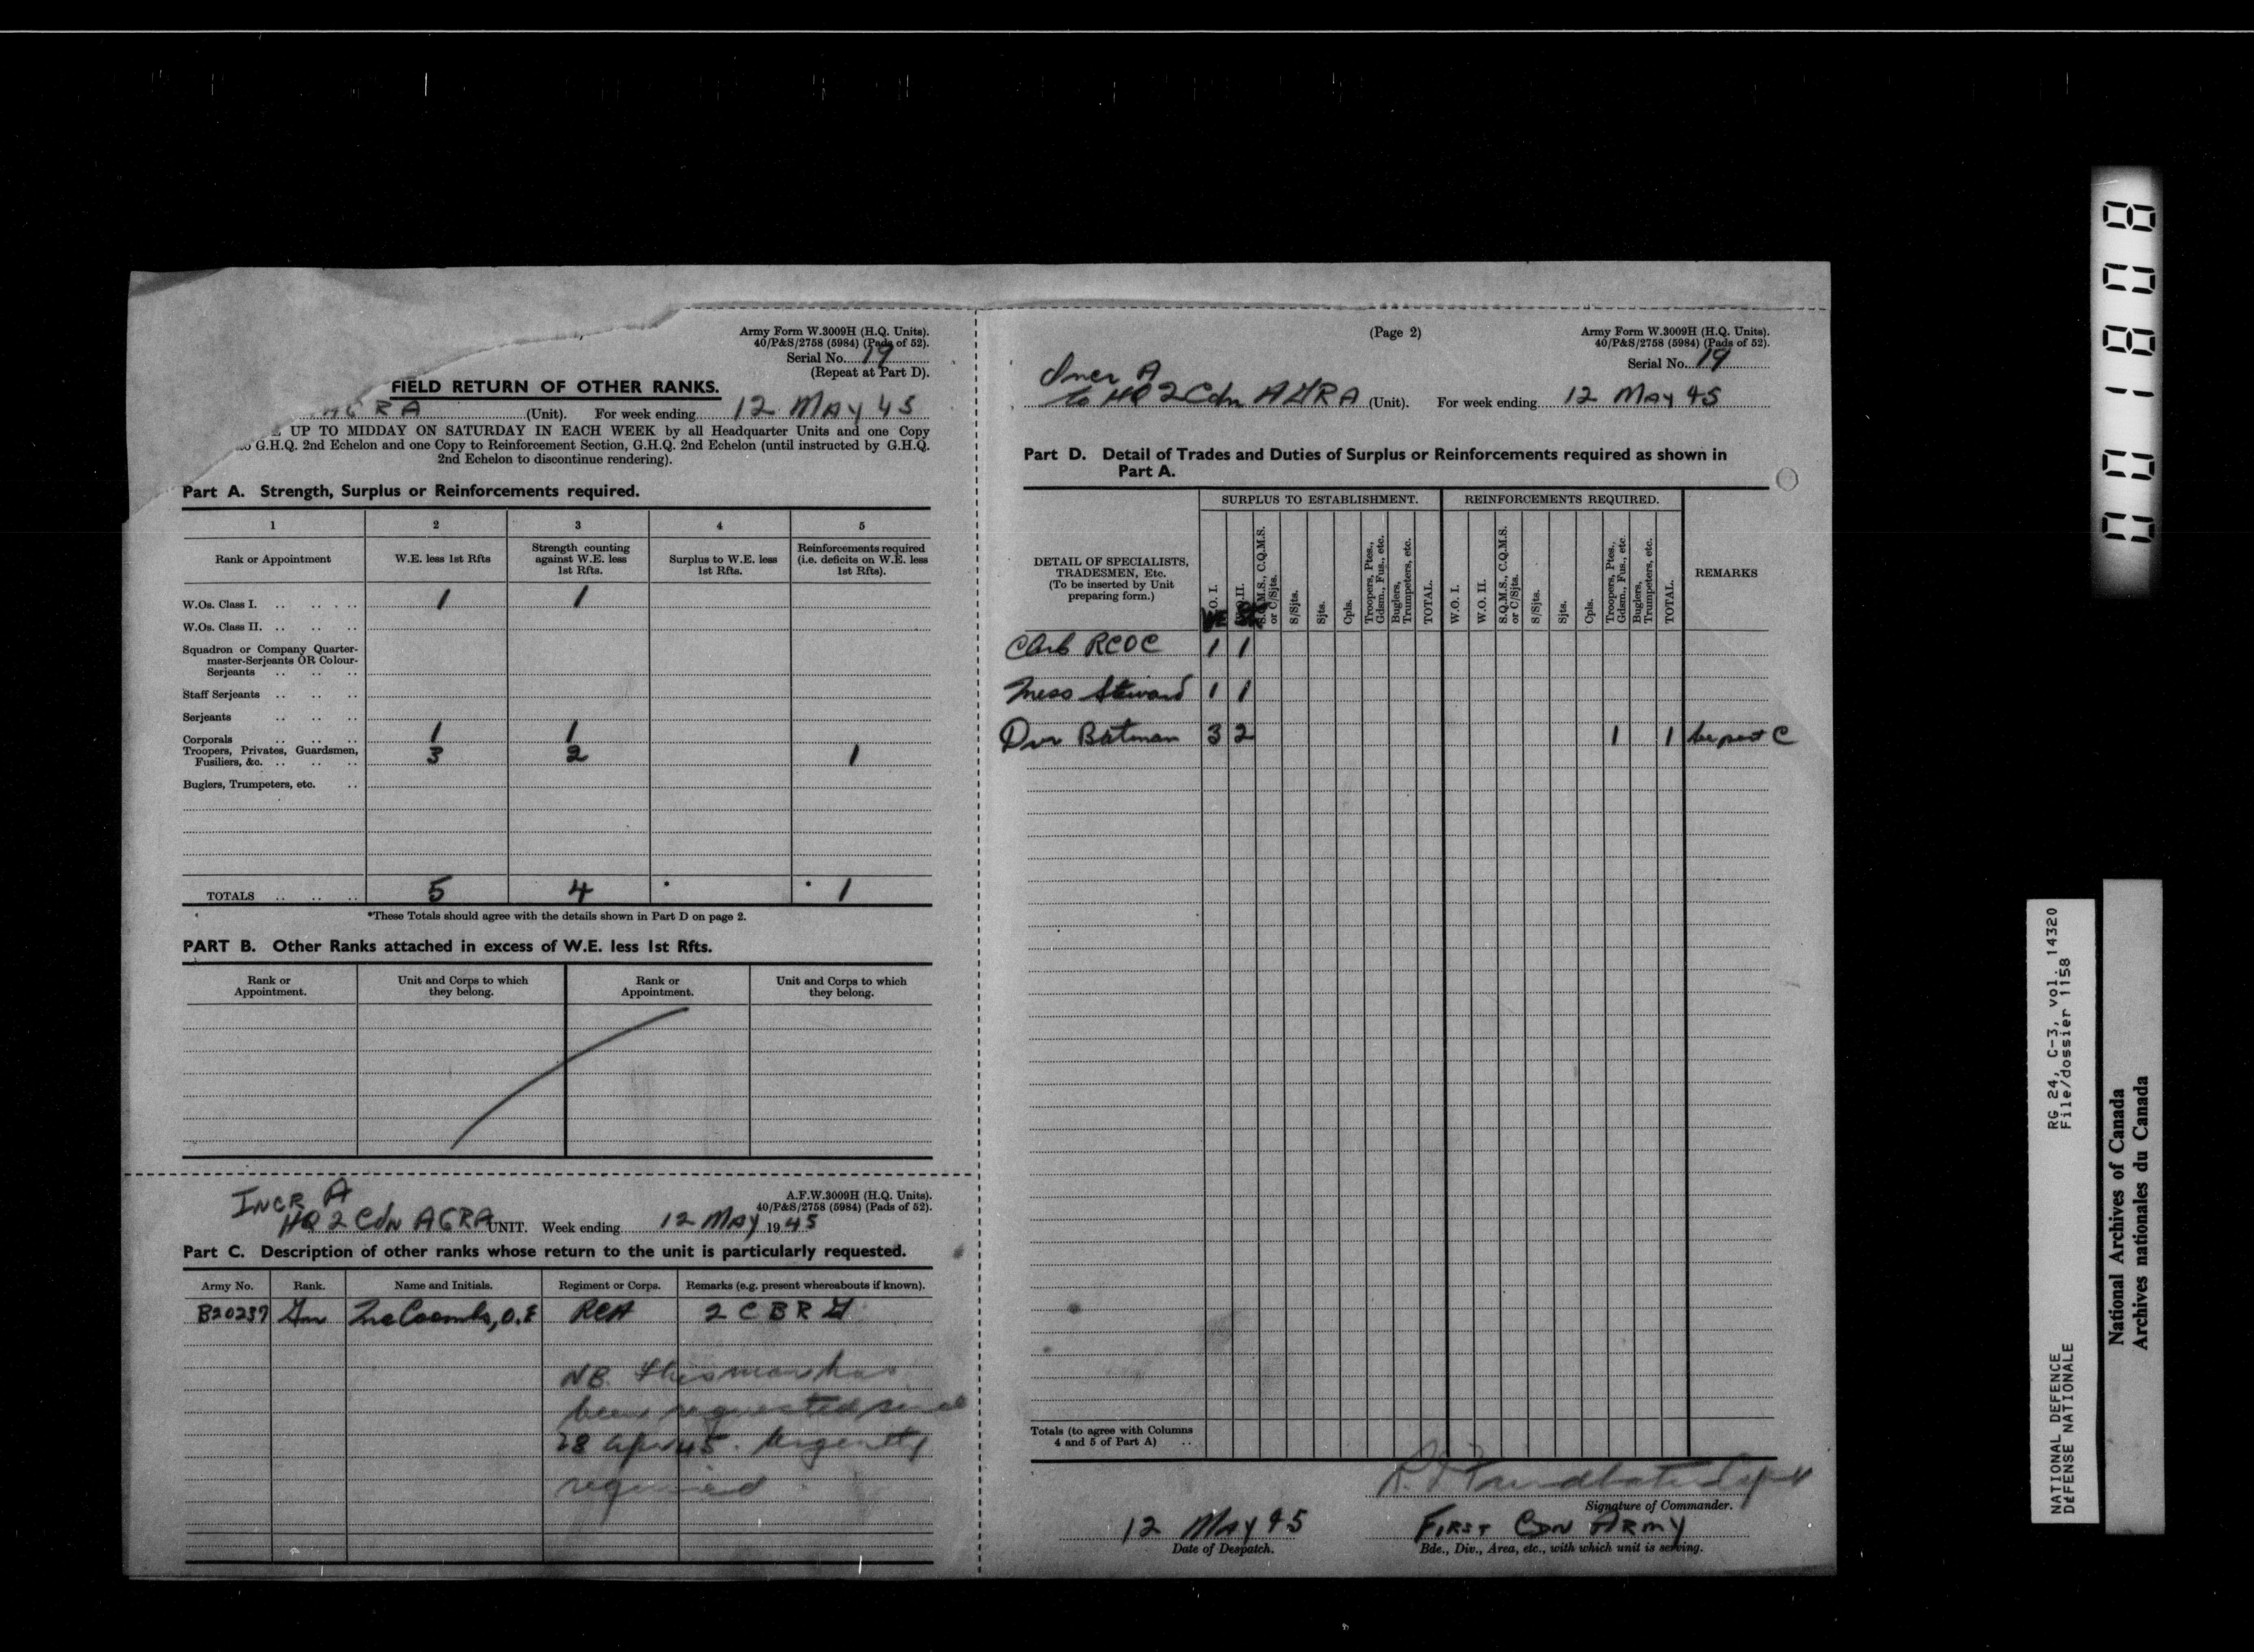 Army Form W.3009H (H.Q. Units).
40/P&S/2758 (5984) (Pads of 52).
Serial No. 19
(Repeat at Part D).
FIELD RETURN OF OTHER RANKS.
AGRA (Unit). For week ending 12 MAY 45
UP TO MIDDAY ON SATURDAY IN EACH WEEK by all Headquarter Units and one Copy
to G.H.Q. 2nd Echelon and one Copy to Reinforcement Section, G.H.Q. 2nd Echelon (until instructed by G.H.Q.
2nd Echelon to discontinue rendering).
Part A. Strength, Surplus or Reinforcements required.
1 2 3 4 5
Rank or Appointment
W.E. less 1st Rfts
Strength counting against W.E. less 1st Rfts.
Surplus to W.E. less 1st Rfts.
Reinforcements required (i.e. deficits on W.E. less 1st Rfts).
W.Os. Class I. 1 1
W.Os. Class II.
Squadron or Company Quarter-
master-Serjeants OR Colour-
Serjeants
Staff Serjeants
Serjeants
Corporals 1 1
Troopers, Privates, Guardsmen,
Fusiliers, &c. 3 2 1
Buglers, Trumpeters, etc.
TOTALS 5 4 * * 1
*These Totals should agree with the details shown in Part D on page 2.
PART B. Other Ranks attached in excess of W.E. less 1st Rfts.
Rank or Appointment.
Unit and Corps to which they belong.
Rank or Appointment.
Unit and Corps to which they belong.
INCR A
A.F.W.3009H (H.Q. Units).
40/P&S/2758 (5984) (Pads of 52).
HQ 2 Cdn AGRA UNIT. Week ending 12 MAY 1945
Part C. Description of other ranks whose return to the unit is particularly requested.
Army No. Rank. Name and Initials. Regiment or Corps. Remarks (e.g. present whereabouts if known).
B20237 Gnr McCoombs, O.E RCA 2 C B R G
NB. This man has
been requested since
28 Apr 45. Urgently
required
(Page 2)
Army Form W.3009H (H.Q. Units).
40/P&S/2758 (5984) (Pads of 52).
Serial No. 19
Incr A
to HQ 2 Cdn AGRA (Unit). For week ending 12 MAY 45
Part D. Detail of Trades and Duties of Surplus or Reinforcements required as shown in
Part A.
SURPLUS TO ESTABLISHMENT. REINFORCEMENTS REQUIRED.
DETAIL OF SPECIALISTS,
TRADESMEN, Etc.
(To be inserted by Unit
preparing form.)
W.O. I.
W.O. II.
S.Q.M.S., C.Q.M.S. or C/Sjts.
S/Sjts.
Sjts.
Cpls.
Troopers, Ptes., Gdsm., Fus., etc.
Buglers, Trumpeters, etc.
TOTAL.
W.O. I.
W.O. II.
S.Q.M.S., C.Q.M.S. or C/Sjts.
S/Sjts.
Sjts.
Cpls.
Troopers, Ptes., Gdsm., Fus., etc.
Buglers, Trumpeters, etc.
TOTAL.
REMARKS
RCOC 1 1
Mess Steward 1 1
Dvr Batman 3 2 1 1 See part C
Totals (to agree with Columns
4 and 5 of Part A)
Signature of Commander.
12 MAY 45
Date of Despatch.
FIRST CDN ARMY
Bde., Div., Area, etc., with which unit is serving.
001808
RG 24, C-3, vol. 14320
File/dossier 1158
NATIONAL DEFENCE
DÉFENSE NATIONALE
National Archives of Canada
Archives nationales du Canada